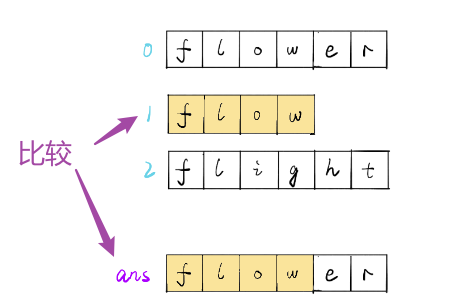 0 f l o w e r
1 f l o w
比较
2 f l i g h t
ans f l o w e r